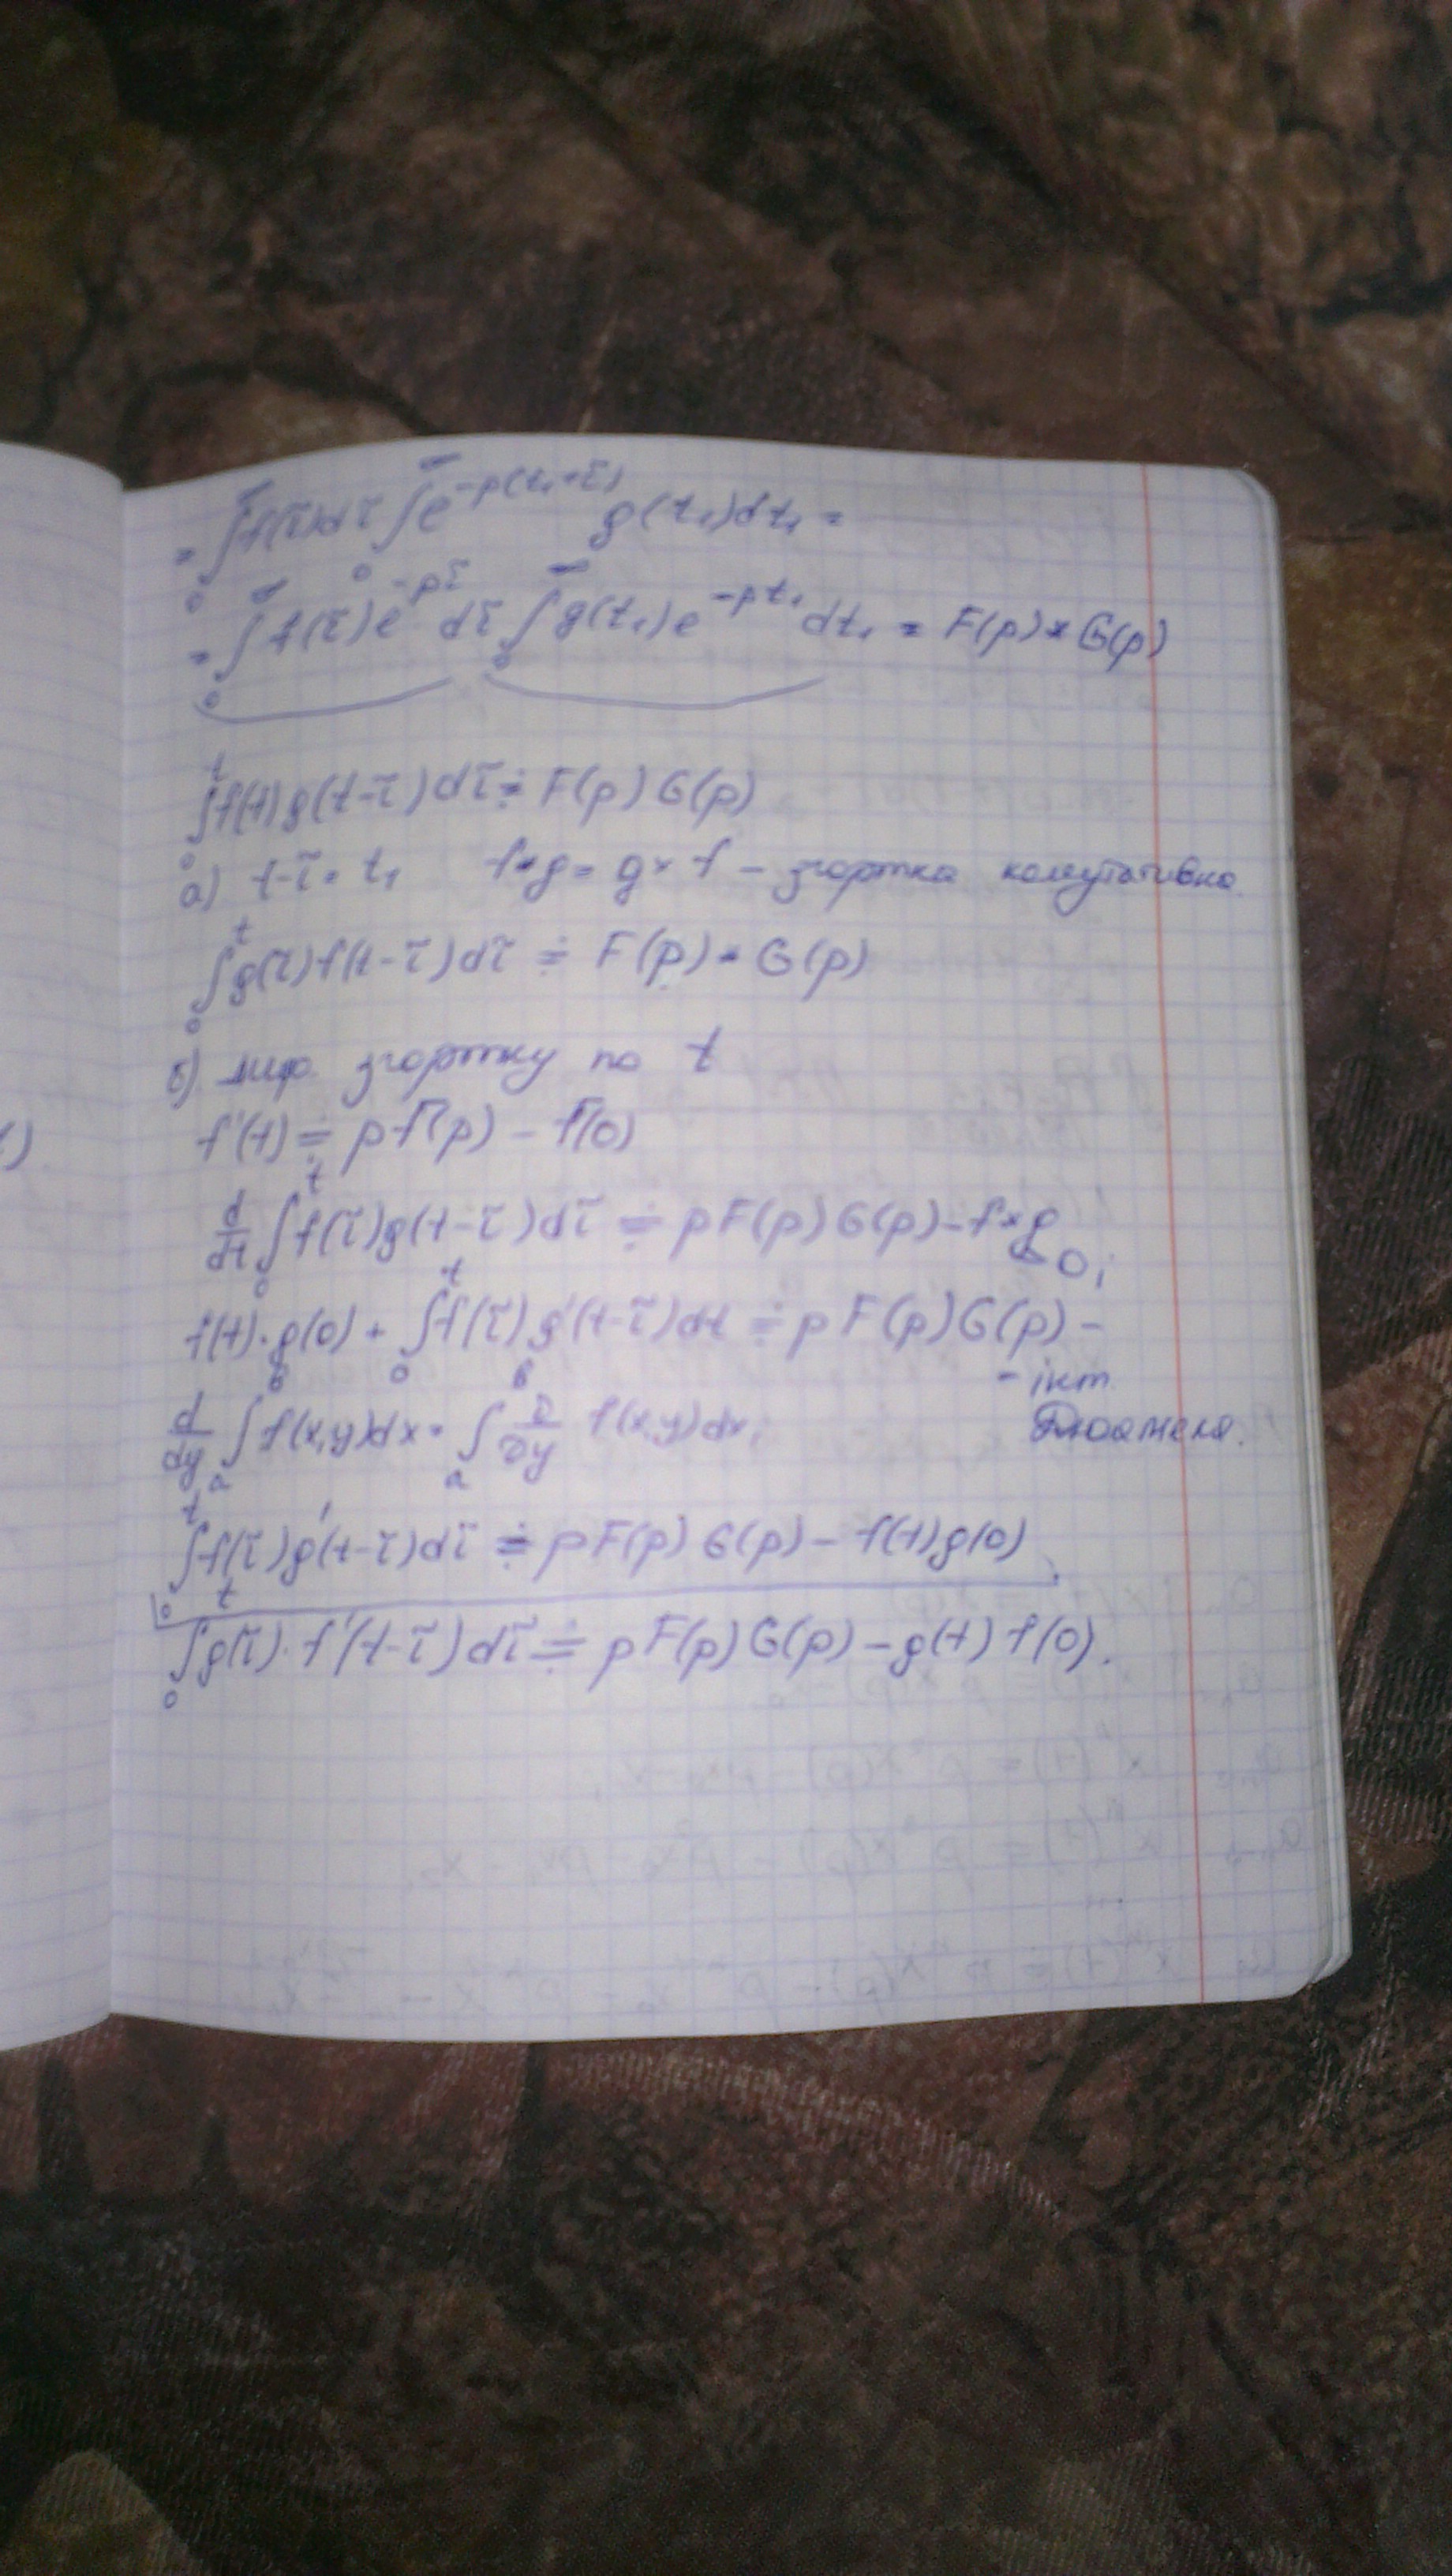 = ∫₀^∞ f(τ)dτ ∫₀^∞ e^{-p(t₁+τ)} g(t₁)dt₁ =
= ∫₀^∞ f(τ)e^{-pτ} dτ ∫₀^∞ g(t₁)e^{-pt₁} dt₁ = F(p) * G(p)
∫₀^t f(t)g(t-τ)dτ ≑ F(p)G(p)
а) t-τ = t₁ f*g = g*f – згортка комутативна.
∫₀^t g(τ)f(t-τ)dτ ≑ F(p) · G(p)
б) диф. згортку по t
f'(t) ≑ pF(p) – f(0)
d/dt ∫₀^t f(τ)g(t-τ)dτ ≑ pF(p)G(p) – f*g
0;
f(t)·g(0) + ∫₀^t f(τ)g'(t-τ)dt ≑ pF(p)G(p) –
– інт.
d/dy ∫ₐ^b f(x,y)dx = ∫ₐ^b ∂/∂y f(x,y)dx; Дюамеля.
∫₀^t f(τ)g'(t-τ)dτ ≑ pF(p)G(p) – f(t)g(0)
∫₀^t g(τ)·f'(t-τ)dτ ≑ pF(p)G(p) – g(t)f(0).